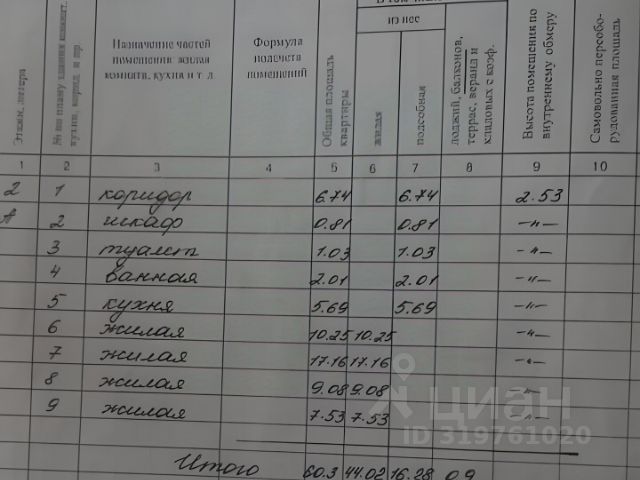 из нес
Этажи, литера
№ по плану здания комнат, кухни, корид. и пр.
Назначение частей
помещения жилая
комната, кухня и т д
Формула
подсчета
помещений
Общая площадь
квартиры
жилая
подсобная
лоджий, балконов,
террас, веранд и
кладовых с коэф.
Высота помещения по
внутреннему обмеру
Самовольно переобо-
рудованная площадь
1 2 3 4 5 6 7 8 9 10
2 1 коридор 6.74 6.74 2.53
А 2 шкаф 0.81 0.81 -"-
3 туалет 1.03 1.03 -"-
4 ванная 2.01 2.01 -"-
5 кухня 5.69 5.69 -"-
6 жилая 10.25 10.25 -"-
7 жилая 17.16 17.16 -"-
8 жилая 9.08 9.08 -"-
9 жилая 7.53 7.53 -"-
Итого 60.3 44.02 16.28 0.9
циан
ID 319761020